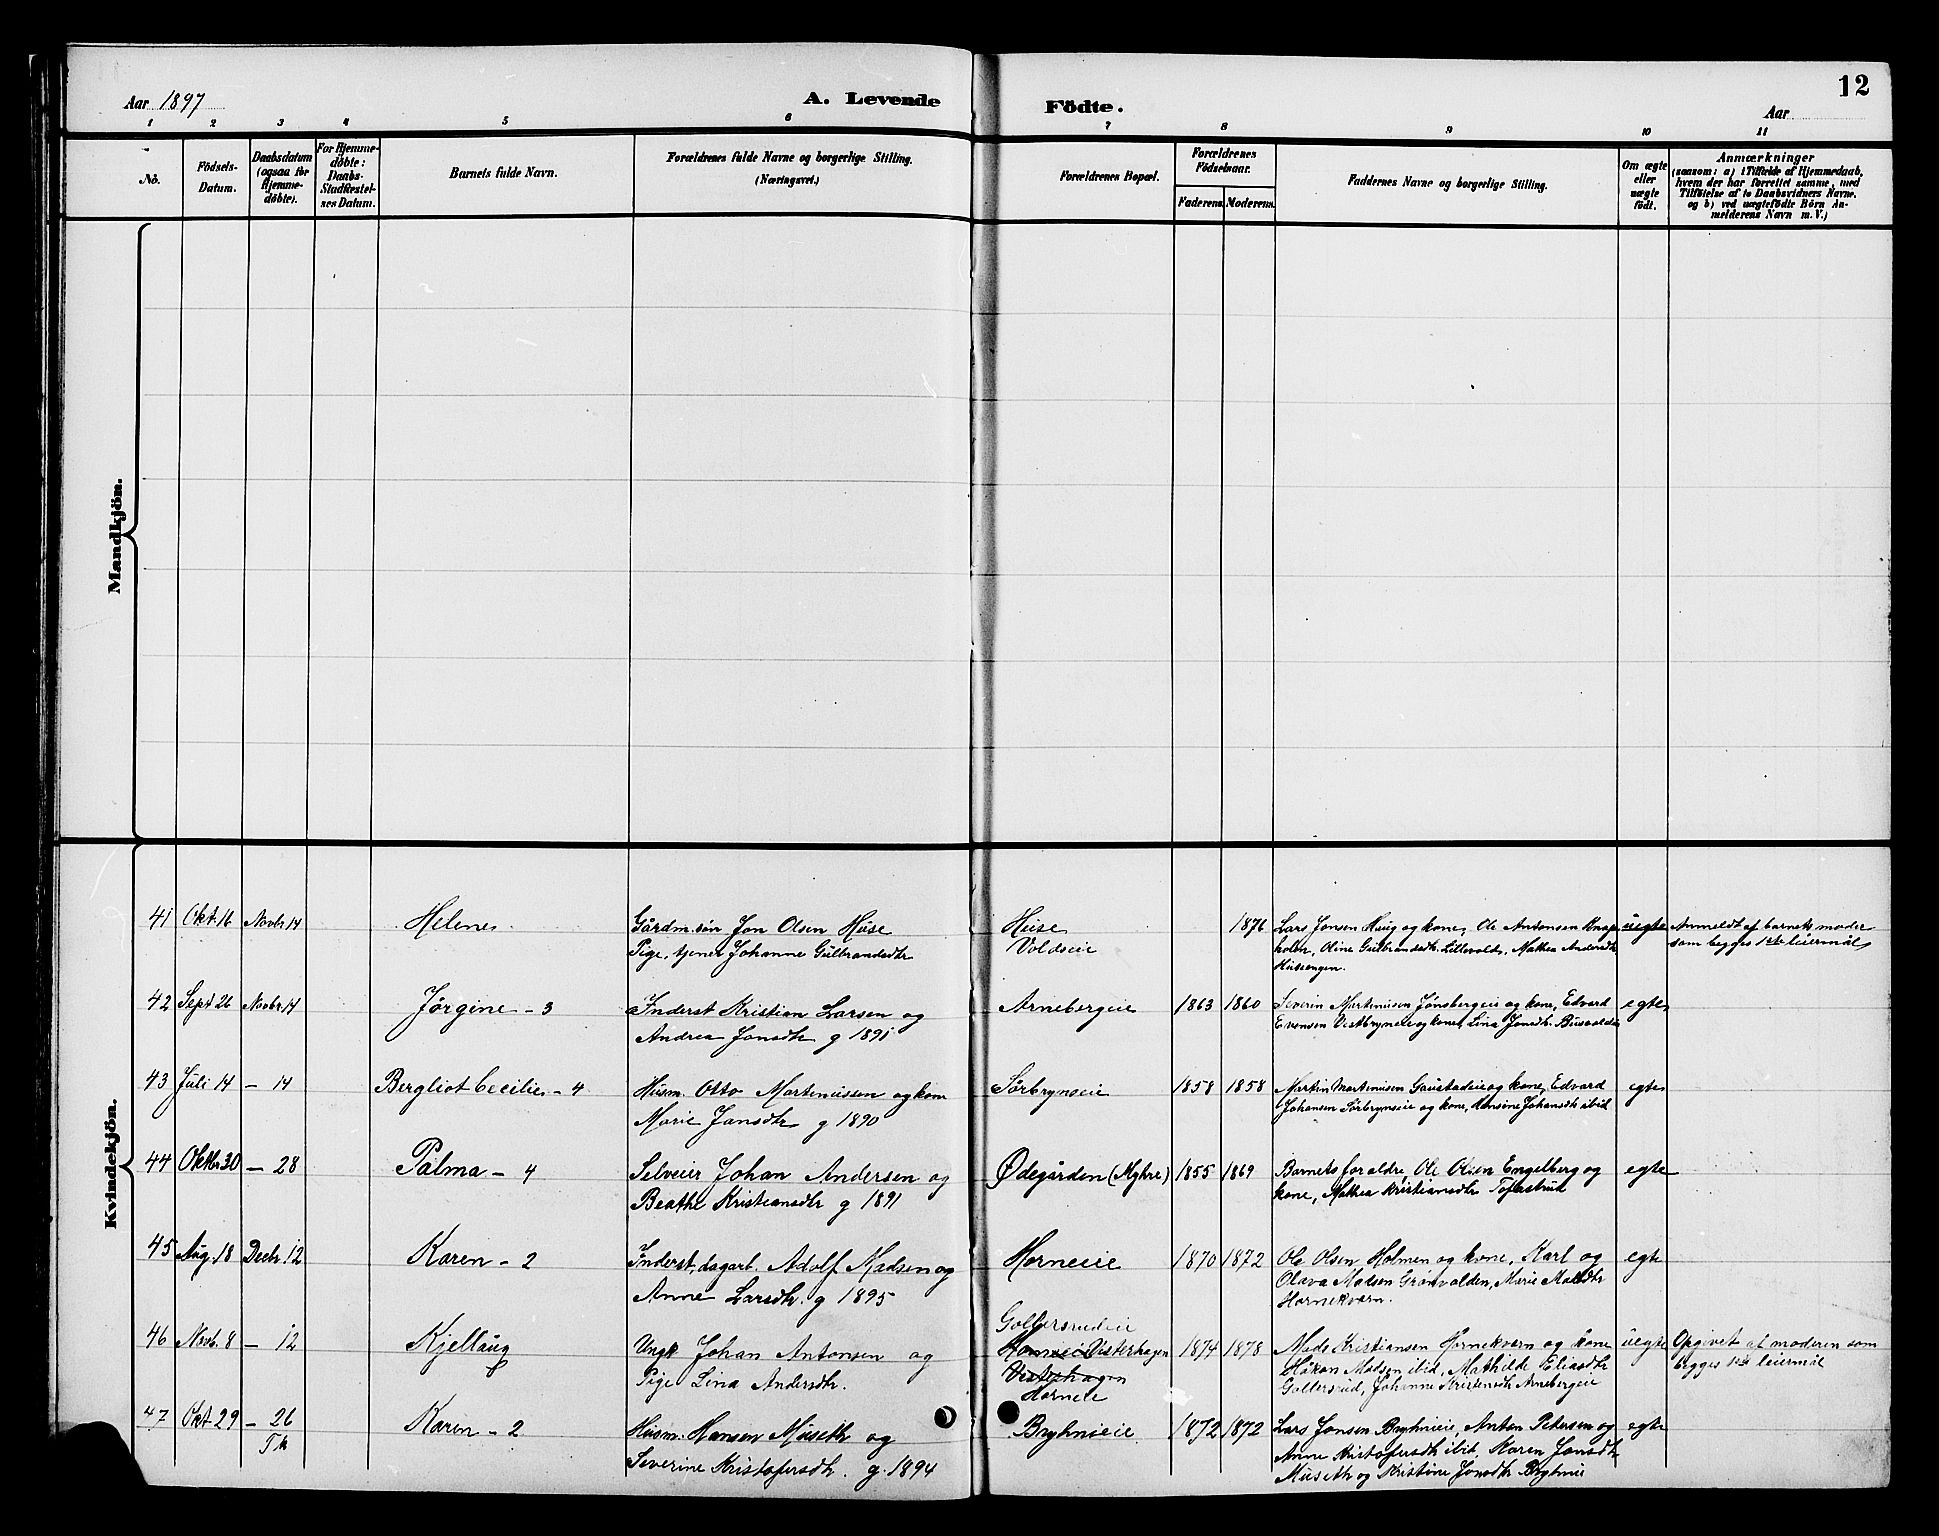 Aar 1897
A. Levende
Födte.
Aar
12
1 2 3 4 5 6 7 8 9 10 11
No.
Födsels-
Datum.
Daabsdatum
(ogsaa for
Hjemme-
döbte).
For Hjemme-
döbte:
Daabs-
Stadfæstel-
ses Datum.
Barnets fulde Navn.
Forældrenes fulde Navne og borgerlige Stilling.
(Næringsvei.)
Forældrenes Bopæl.
Forældrenes
Födselsaar.
Faderens. Moderens.
Faddernes Navne og borgerlige Stilling.
Om ægte
eller
uægte
födt.
Anmærkninger
(saasom: a) i Tilfælde af Hjemmedaab,
hvem der har forrettet samme, med
Tilföielse af to Daabsvidners Navne.
og b) ved uægtefödte Börn An-
melderens Navn m. V.)
Mandkjön.
Kvindekjön.
41 Okt. 16 Novbr 14 Helene
Gårdm. søn Jon Olsen Huse
Pige, tjener Johanne Gulbrandsdtr
Huse
Voldseie
1876
Lars Jonsen Huse og kone, Ole Antonsen
holen, Oline Gulbrandsdtr. Lillevold, Mathea Andersdtr
Husengen.
uegte
Anmeldt af barnets moder
som begges 1ste leiermål
42 Sept 26 Novbr 14 Jørgine - 3
Inderst Kristian Larsen og
Andrea Jonsdtr g 1891
Arnebergeie
1863 1860
Severin Martinusen Jønsbergeie og kone, Edvard
Evensen Vestbryneie og kone, Lina Jonsdtr.
egte
43 Juli 14 — 14 Bergliot Cecilie - 4
Husm. Otto Martinussen og kone
Marie Jansdtr g 1890
Sørbrynseie
1858 1858
Martin Martinusen Gaustadeie og kone, Edvard
Johansen Sørbrynseie og kone, Hansine Johansdtr ibid
egte
44 Oktbr 30 — 28 Palma - 4
Selveier Johan Andersen og
Beathe Kristiansdtr g 1891
Ødegården (Myhre)
1855 1869
Barnets foraldre, Ole Olsen Engelberg og
kone, Mathea Kristiansdtr Tofastrud
egte
45 Aug. 18 Decbr. 12 Karen - 2
Inderst, dagarb. Adolf Madsen og
Anne Larsdtr. g 1895
Horneie
1870 1872
Ole Olsen Holmen og kone, Karl og
Olava Madsen Grønvolden, Marie Madsdtr
Hornekværn.
egte
46 Novb. 8 — 12 Kjellaug
Ungk Johan Antonsen og
Pige Lina Andersdtr.
Gollersrudeie
Horneie Vesterhagen
Vesterhagen
Horneie
1874 1878
Mads Kristiansen Hornekværn og kone
Håkon Madsen ibid, Mathilde Eliasdtr
Gollersrud, Johanne Kristensdtr Arnebergeie
uegte
Opgivet af moderen som
begges 1ste leiermål
47 Okt 29 — 26 Karen - 2
Husm. Hansen Museth og
Severine Kristofersdtr. g. 1894
Bryhnieie
1872 1872
Lars Jonsen Bryhnieie, Anton Petersen og
Anne Kristofersdtr ibid, Karen Jonsdtr
Museth og Kristine Jonsdtr Bryhnie
egte